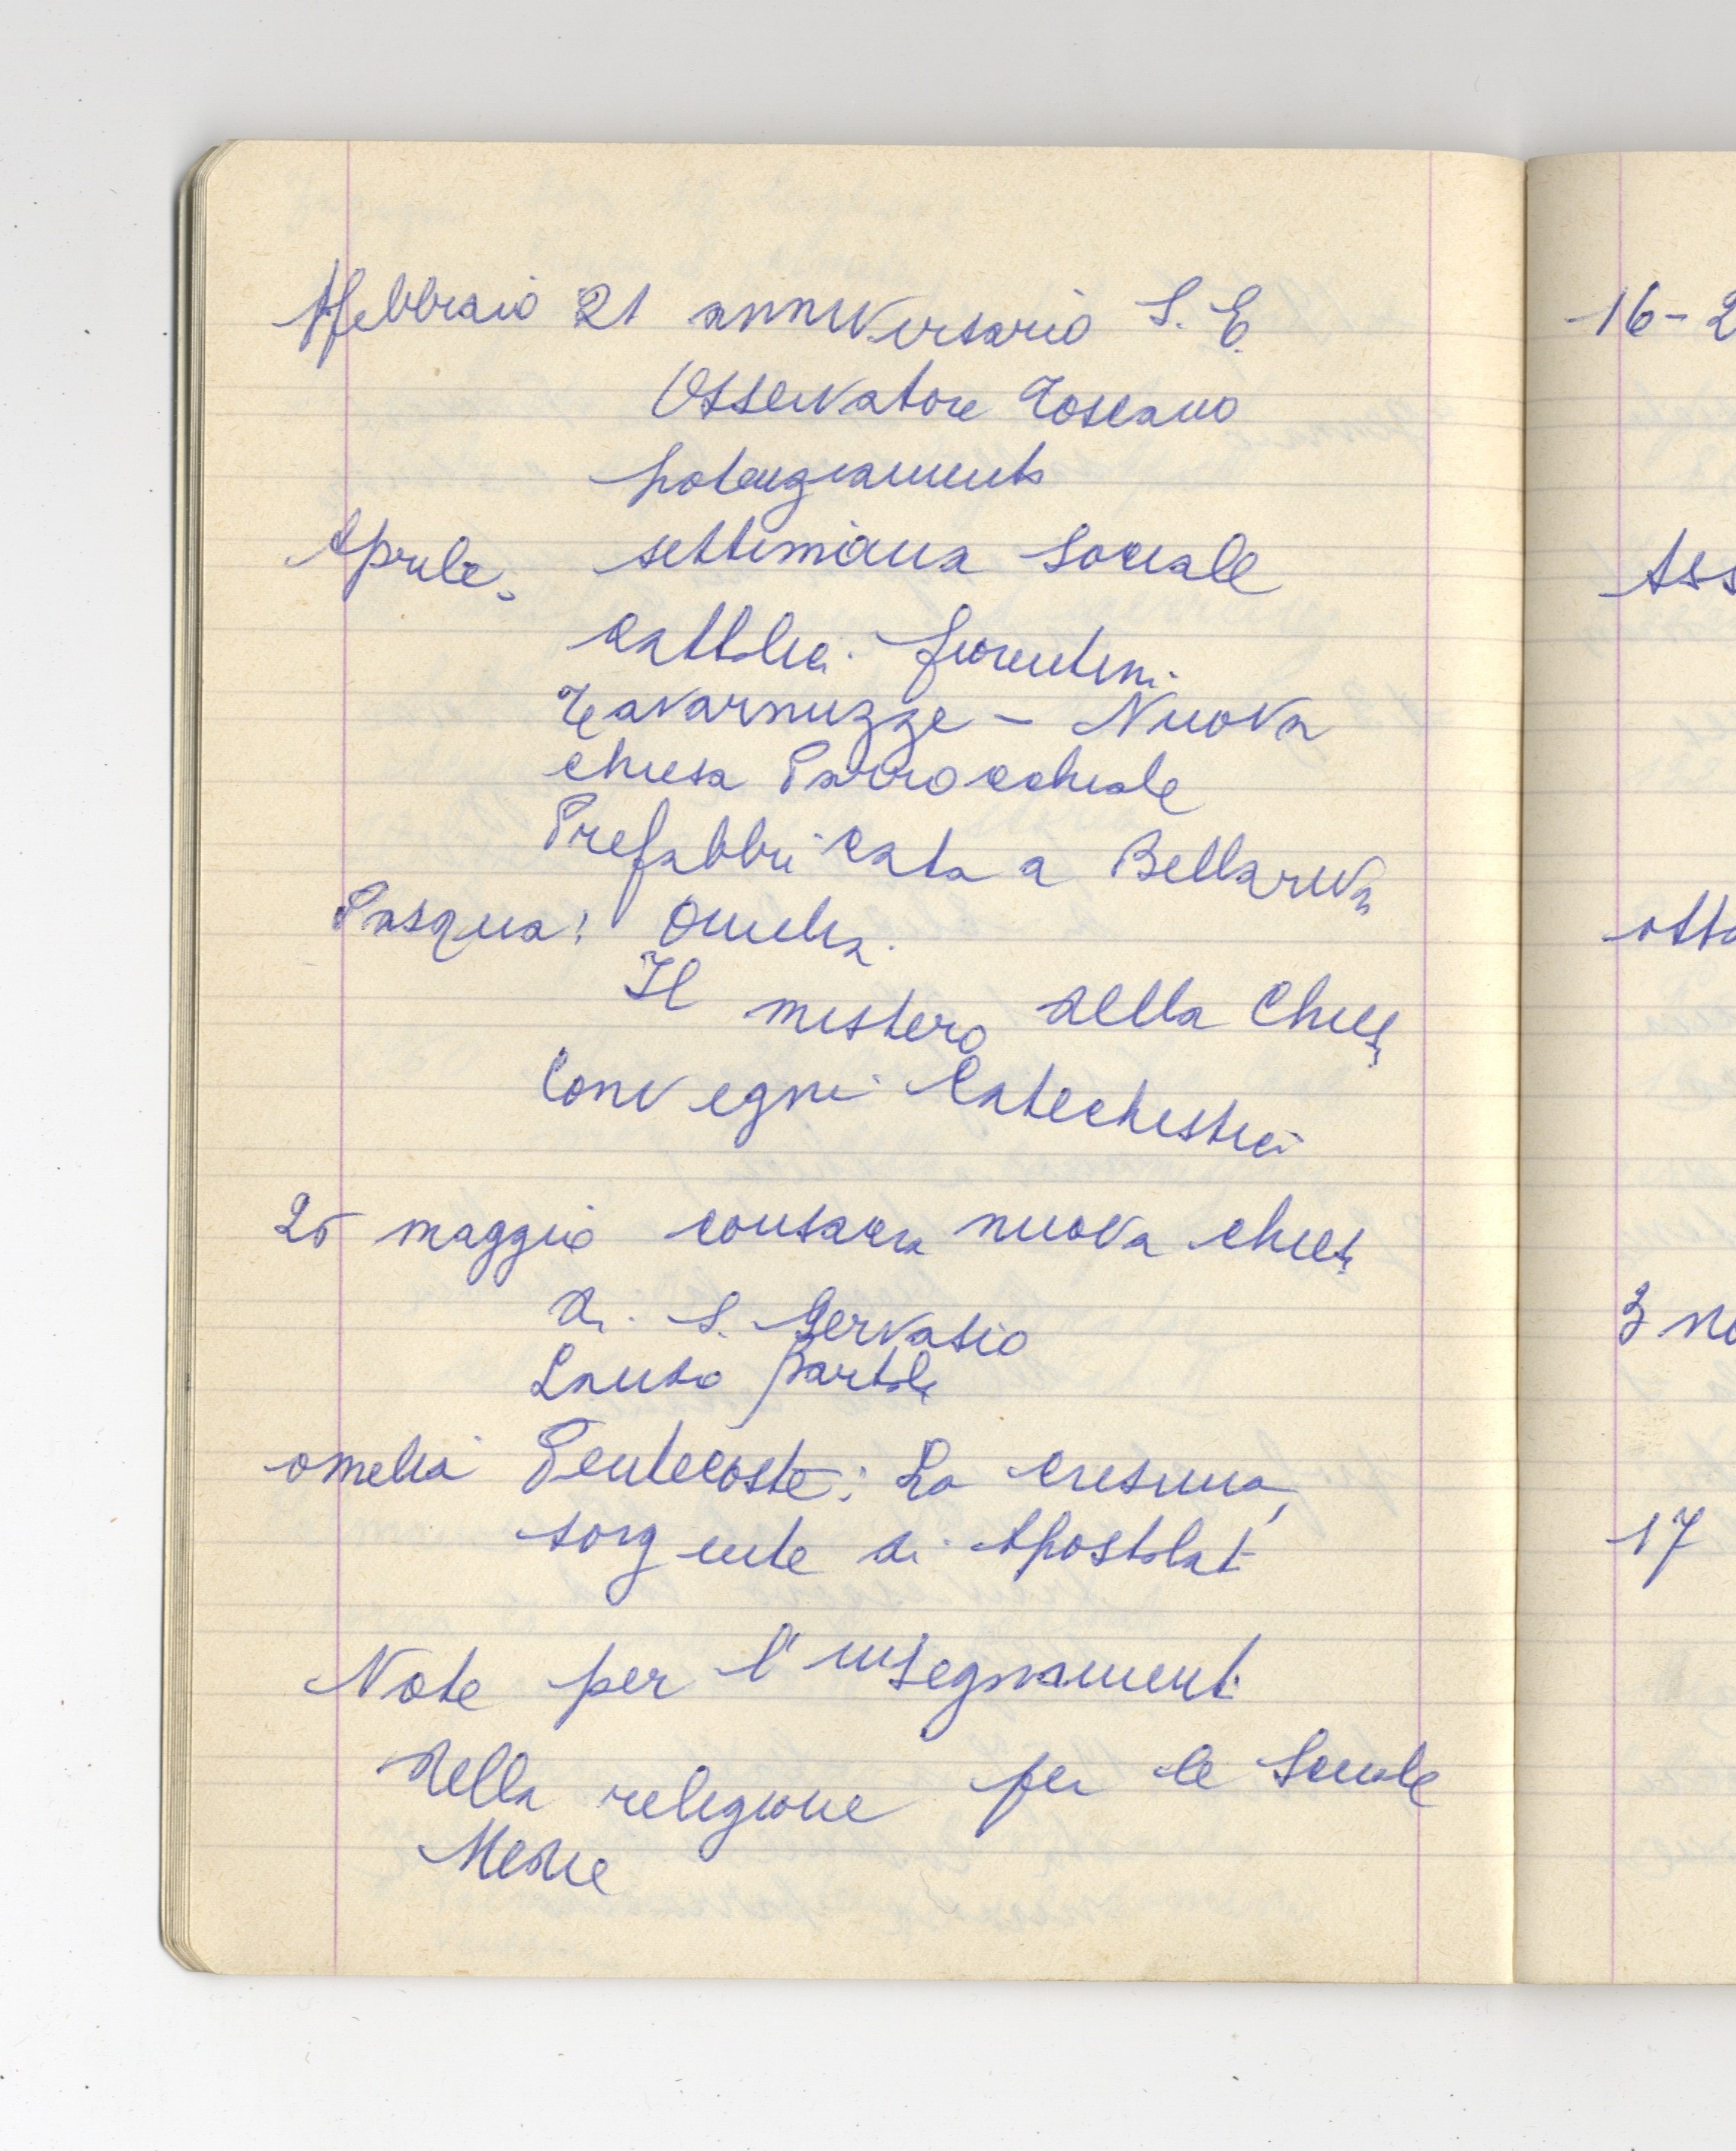 febbraio 21 anniversario S. E.
Osservatore Toscano
Aprile. settimana Sociale
cattolici fiorentini
Tavarnuzze - Nuova
chiesa Parrocchiale
Prefabbricata a Bellariva
Pasqua: Omelia.
Il mistero della Chiesa
Convegni Catechistici
25 maggio consacra nuova chiesa
di S. Gervasio
Lauso Bartoli
omelia Pentecoste: La cresima,
sorgente di Apostolato
Note per l'insegnamento
della religione per le Scuole
Medie
16-2
Ass
otto
3 no
17